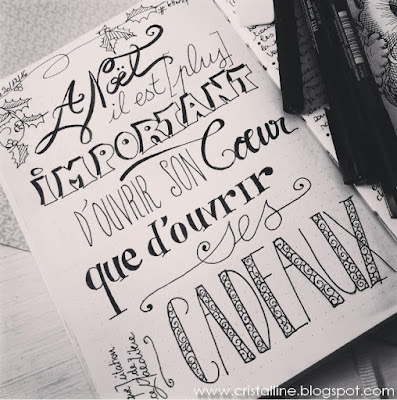 A Noël
il est [plus]
IMPORTANT
D'OUVRIR SON Cœur
que d'ouvrir
ses
CADEAUX
citation
www.cristalline.blogspot.com